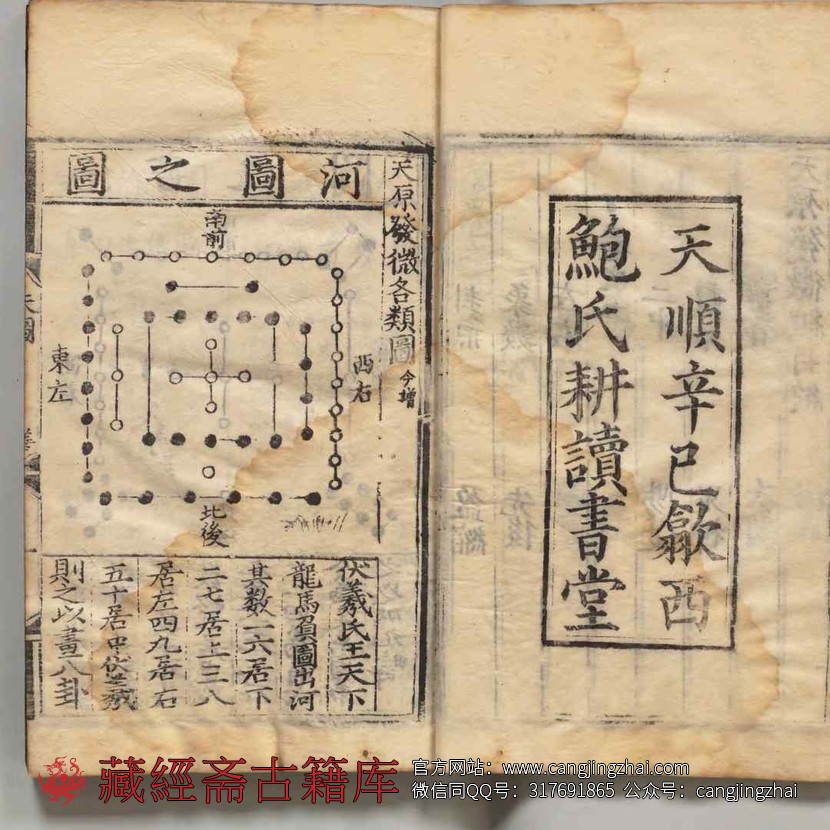 天順辛巳歙西
鮑氏耕讀書堂
天原發微各類圖今增
河圖之圖
南前
西右
東左
北後
伏羲氏王天下
龍馬負圖出河
其數一六居下
二七居上三八
居左四九居右
五十居中伏羲
則之以畫八卦
藏經斋古籍库
官方网站：www.cangjingzhai.com
微信同QQ号：317691865 公众号：cangjingzhai